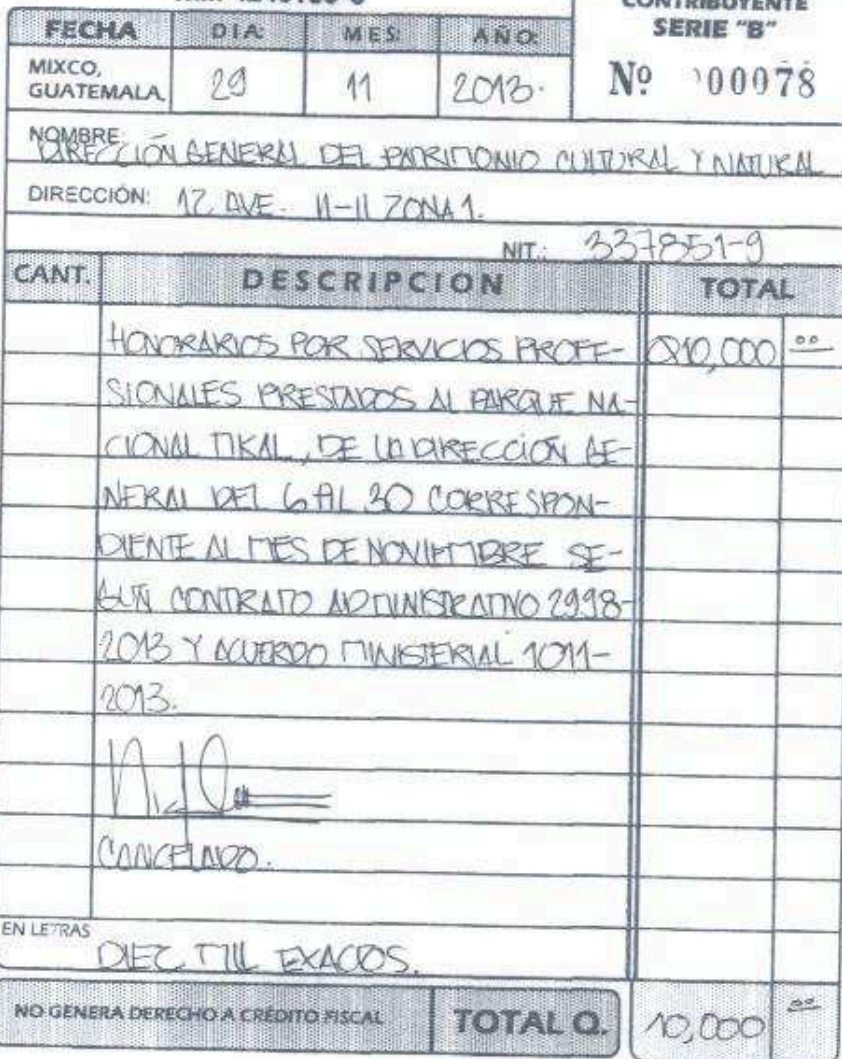 CONTRIBUYENTE
SERIE "B"
Nº 00078
FECHA DIA: MES: AÑO:
MIXCO, GUATEMALA, 29 11 2013.
NOMBRE: DIRECCIÓN GENERAL DEL PATRIMONIO CULTURAL Y NATURAL
DIRECCIÓN: 12 AVE. 11-11 ZONA 1.
NIT.: 337851-9
CANT. DESCRIPCION TOTAL
HONORARIOS POR SERVICIOS PROFE- Q10,000 00
SIONALES PRESTADOS AL PARQUE NA-
CIONAL TIKAL, DE LA DIRECCIÓN GE-
NERAL DEL 6 AL 30 CORRESPON-
DIENTE AL MES DE NOVIEMBRE SE-
GUN CONTRATO ADMINISTRATIVO 2998-
2013 Y ACUERDO MINISTERIAL 1011-
2013.
CANCELADO.
EN LETRAS
DIEZ MIL EXACTOS.
NO GENERA DERECHO A CRÉDITO FISCAL TOTAL Q. 10,000 00